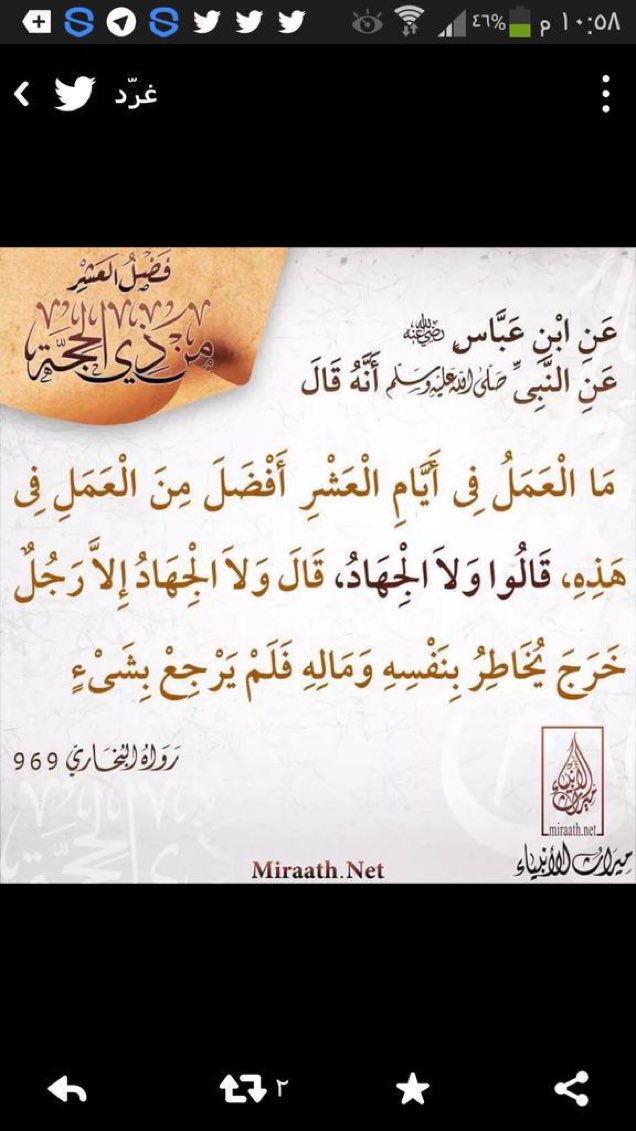 ٤٦% ١٠:٥٨ م
غرّد
فَضْلُ الْعَشْرِ
مِنْ ذِي الْحِجَّةِ
عَنِ ابْنِ عَبَّاسٍ رضي الله عنه
عَنِ النَّبِىِّ صَلَّى اللَّهُ عَلَيْهِ وَسَلَّمَ أَنَّهُ قَالَ
مَا الْعَمَلُ فِى أَيَّامِ الْعَشْرِ أَفْضَلَ مِنَ الْعَمَلِ فِى
هَذِهِ، قَالُوا وَلاَ الْجِهَادُ، قَالَ وَلاَ الْجِهَادُ إِلاَّ رَجُلٌ
خَرَجَ يُخَاطِرُ بِنَفْسِهِ وَمَالِهِ فَلَمْ يَرْجِعْ بِشَىْءٍ
رَوَاهُ الْبُخَارِيّ 969
ميراث الأنبياء
miraath.net
ميراث الأنبياء
Miraath.Net
٢